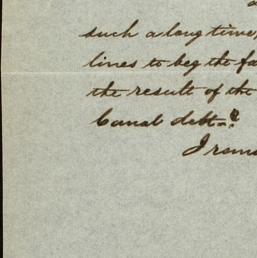 such a long time,
lines to beg the fa
the result of the
Canal debt—?
I rema